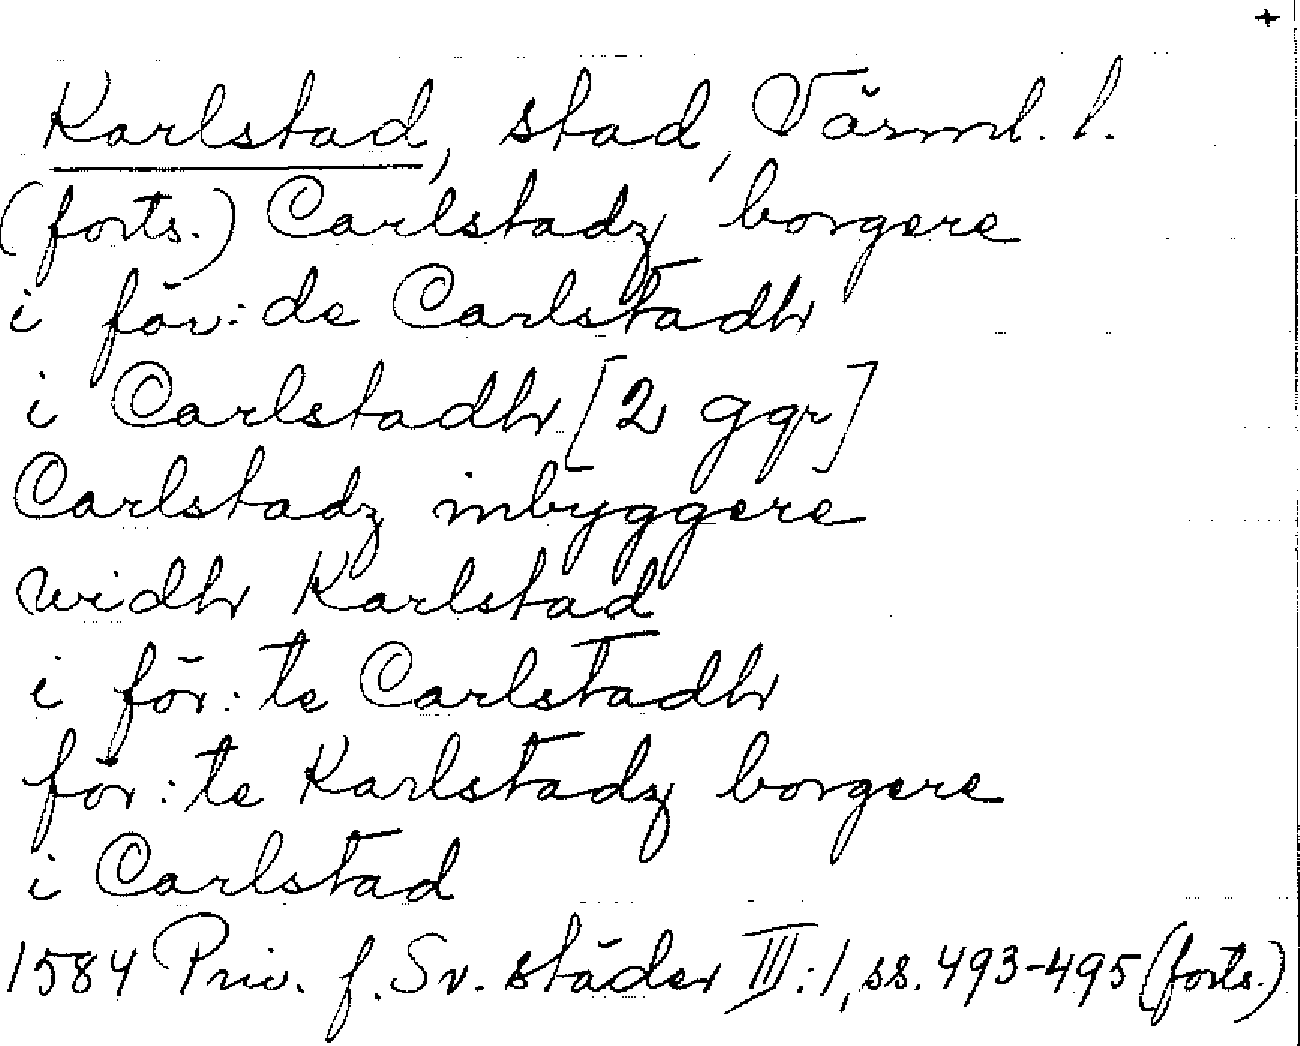 +
Karlstad, stad, Värml. l.
(forts.) Carlstadz borgere
i för:de Carlstadh
i Carlstadh [2 ggr]
Carlstadz inbyggere
widh Karlstad
i för:te Carlstadh
för:te Karlstadz borgere
i Carlstad
1584 Priv. f. Sv. städer III:1, ss. 493-495 (forts.)